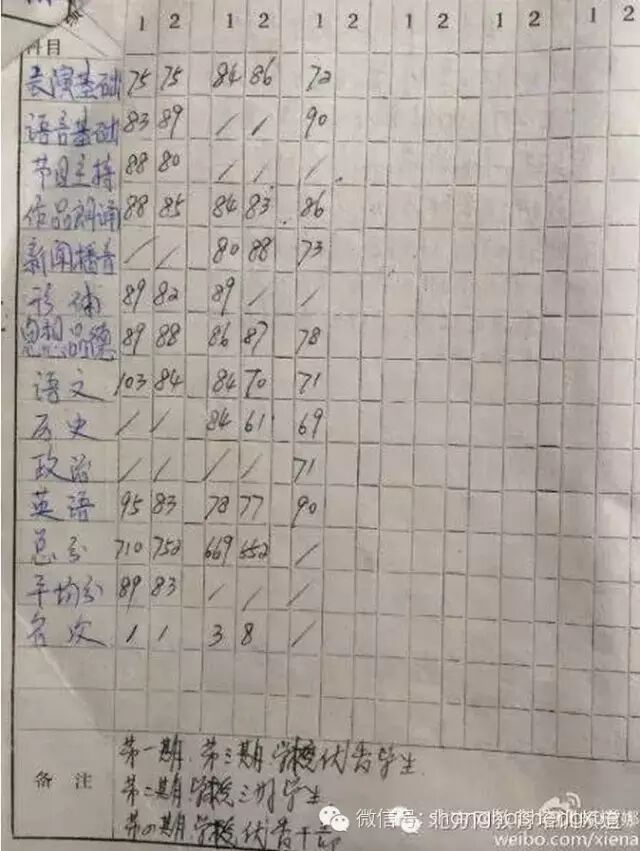 1 2 1 2 1 2 1 2 1 2 1 2
科目
表演基础 75 75 84 86 72
语音基础 83 89 / / 90
节目主持 88 80 / / /
作品朗诵 88 85 84 83 86
新闻播音 / / 80 88 73
形体 89 82 89 / /
思想品德 89 88 86 87 78
语文 103 84 84 70 71
历史 / / 84 61 69
政治 / / / / 71
英语 95 83 78 77 90
总分 710 752 669 552 /
平均分 89 83 / / /
名次 1 1 3 8 /
备注
第一期、第三期学校优秀学生
第二期学校三好学生
第四期学校优秀干部
微信号: shanghaishedu
北方向教育培训频道
weibo.com/xiena